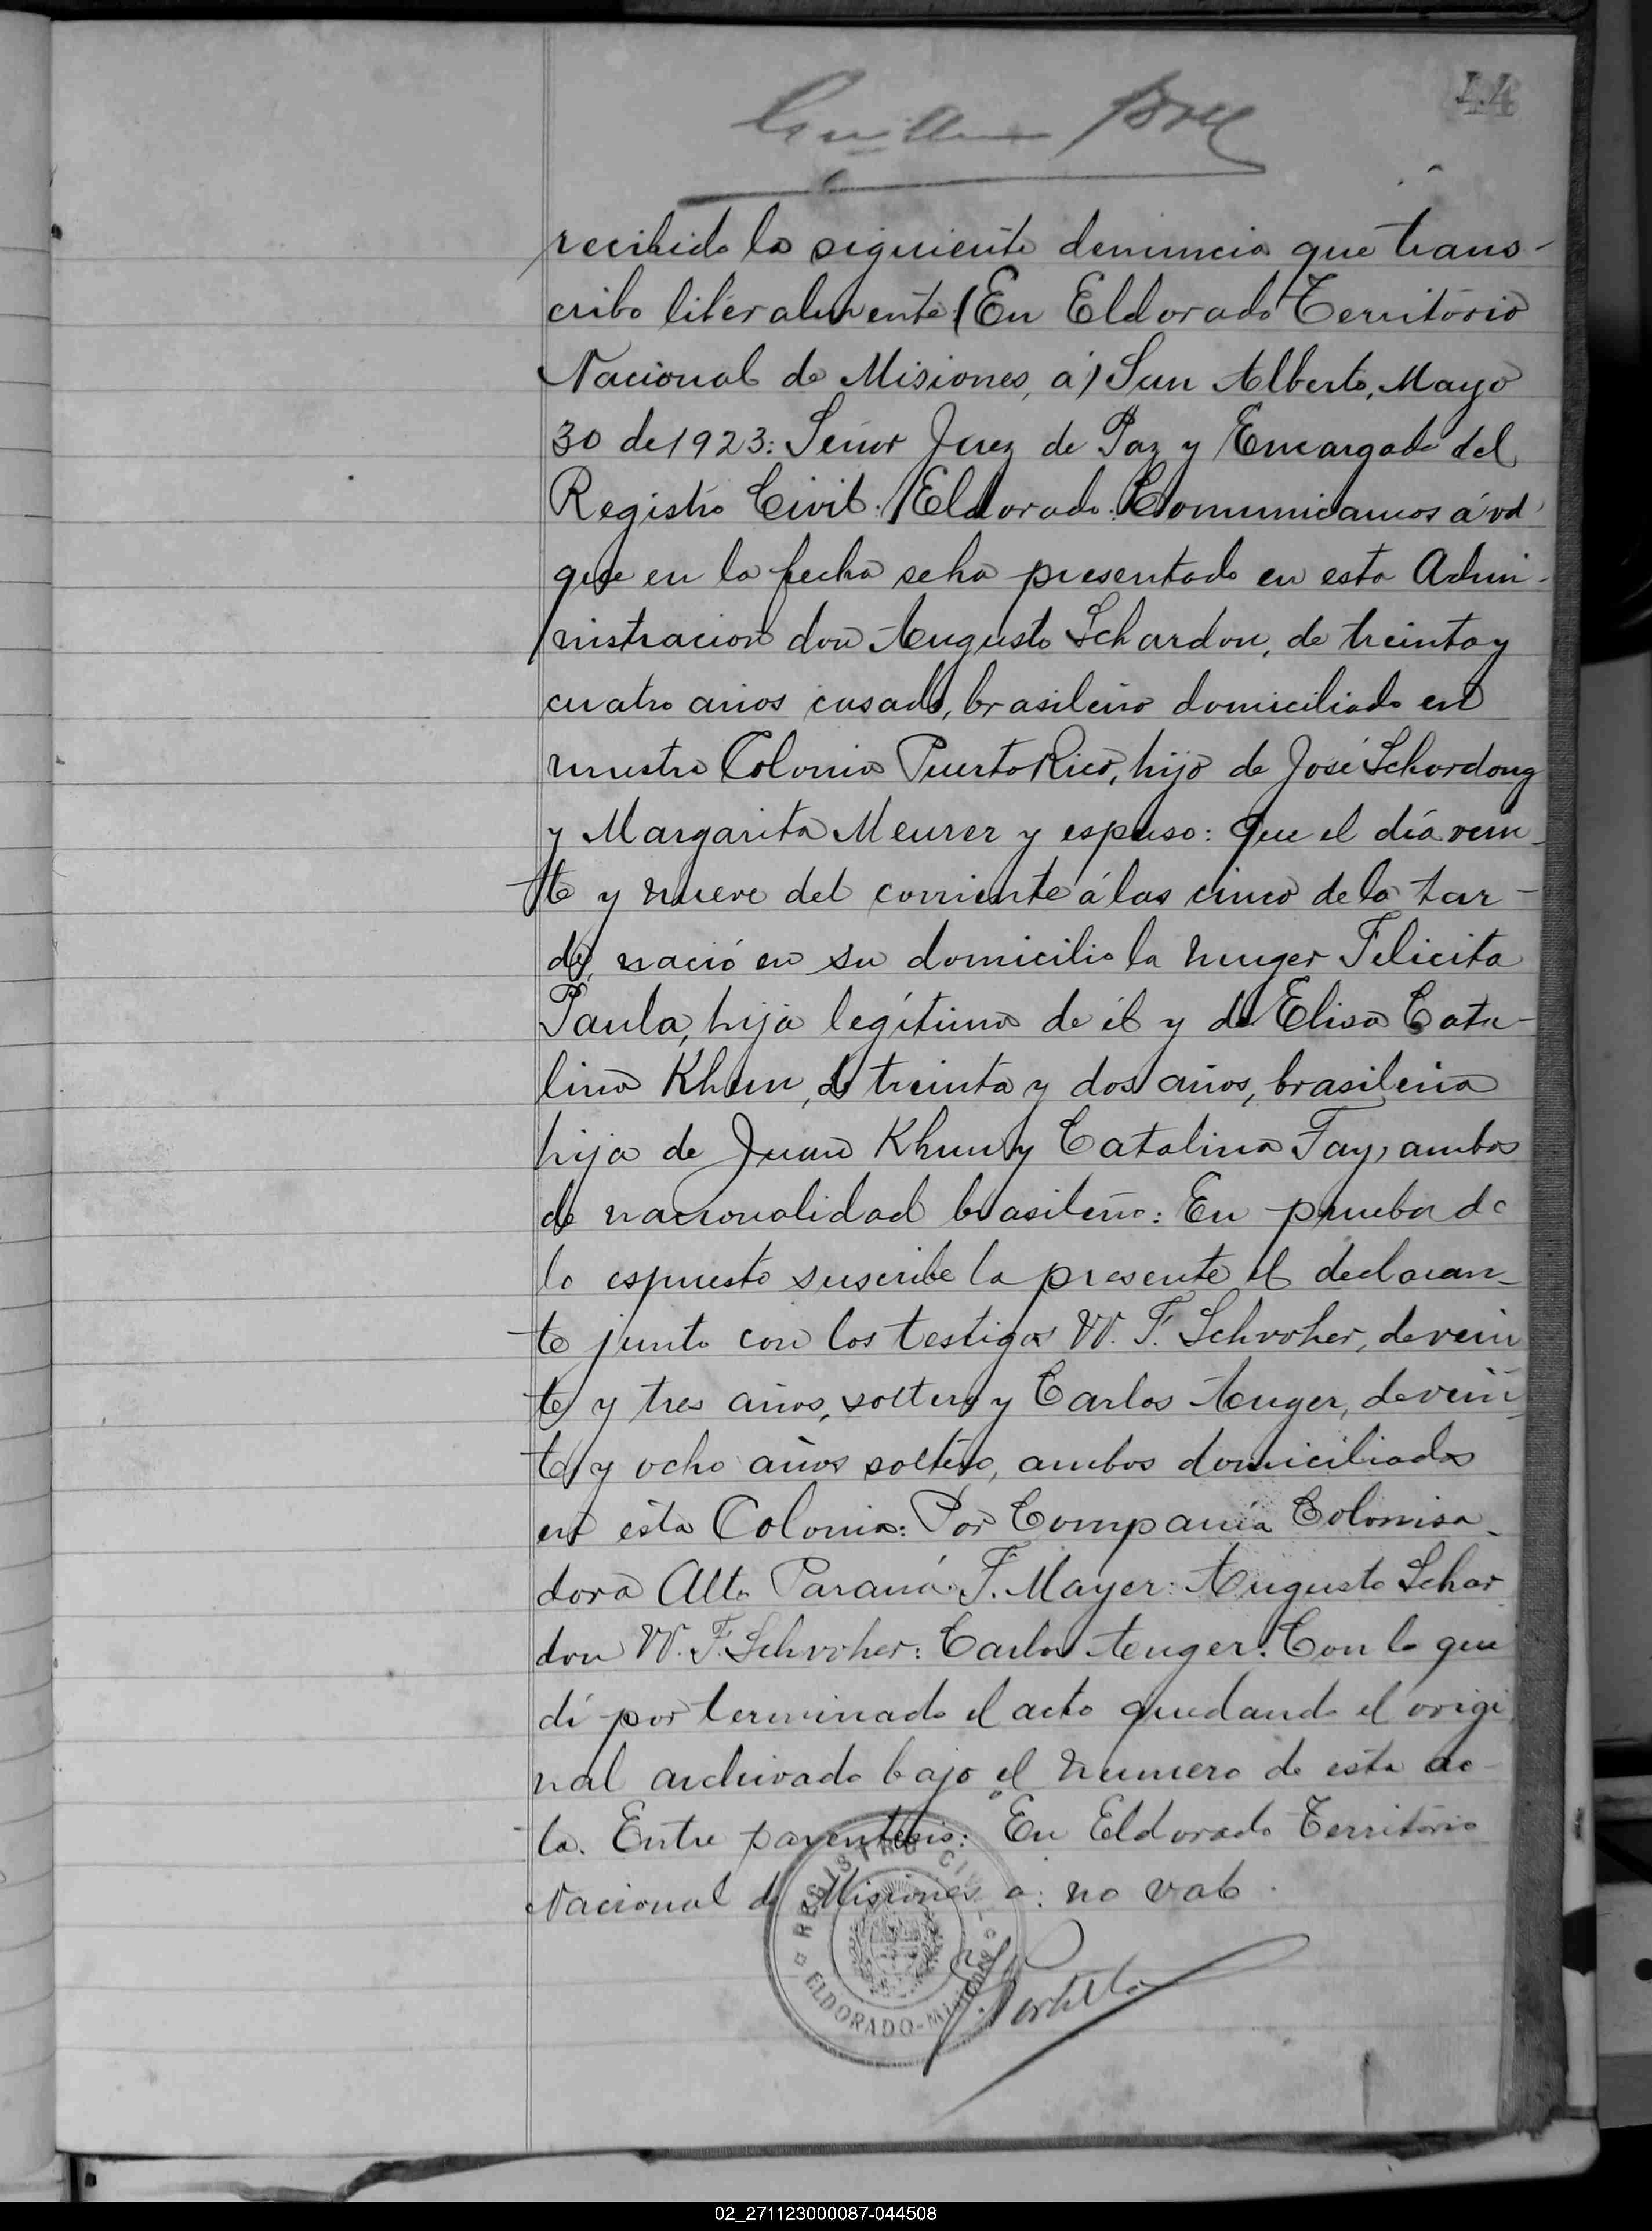 44
recibido la siguiente denuncia que trans-
cribo literalmente: (En Eldorado Territorio
Nacional de Misiones, a) San Alberto, Mayo
30 de 1923: Señor Juez de Paz y Encargado del
Registro Civil: Eldorado: Comunicamos á vd
que en la fecha se ha presentado en esta Admi-
nistracion don Augusto Schardon, de treinta y
cuatro años casado, brasileño domiciliado en
nuestra Colonia Puerto Rico, hijo de José Schardong
y Margarita Meurer y espuso: Que el día vein-
te y nueve del corriente á las cinco de la tar-
de, nació en su domicilio la muger Felicita
Paula, hija legítima de él y de Elisa Cata-
lina Khun, de treinta y dos años, brasileña
hija de Juan Khun y Catalina Fay, ambos
de nacionalidad brasileña: En prueba de
lo espuesto suscribe la presente el declaran-
te junto con los testigos W. F. Schroher, de vein
te y tres años, soltero y Carlos Auger, de vein
te y ocho años soltero, ambos domiciliados
en ésta Colonia: Por Compañia Colonisa-
dora Alto Paraná: F. Mayer: Augusto Schar
don W. F. Schroher: Carlos Auger. Con lo que
dí por terminado el acto quedando el origi
nal archivado bajo el numero de esta ac-
ta. Entre parentesis: En Eldorado Territorio
Nacional de Misiones a: no vale.
REGISTRO CIVIL
ELDORADO - MISIONES
02_271123000087-044508